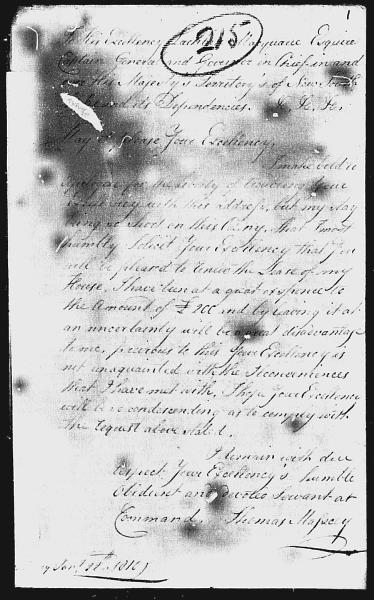 1
215
To His Excellency Lachlan Macquarie Esquire
Captain General and Governor in Chief in and
over His Majesty's Territory's of New South
and its Dependencies. &c &c
May it please Your Excellency,
I make bold to
for the liberty of troubling your
Excellency with this address, but my stay
being so short in this Colony, that I most
humbly solicit Your Excellency that you
will be pleased to renew the Lease of my
House, I have been at a great expence to
the amount of £ 200 and by leaving it at
an uncertainty will be a great disadvantage
to me, previous to this Your Excellency is
not unaquainted with the Inconveniences
that I have met with, I hope Your Excellency
will be so condescending as to comply with
the request above stated.
I remain with due
respect Your Excellency's humble
Obedient and devoted Servant at
Command, Thomas